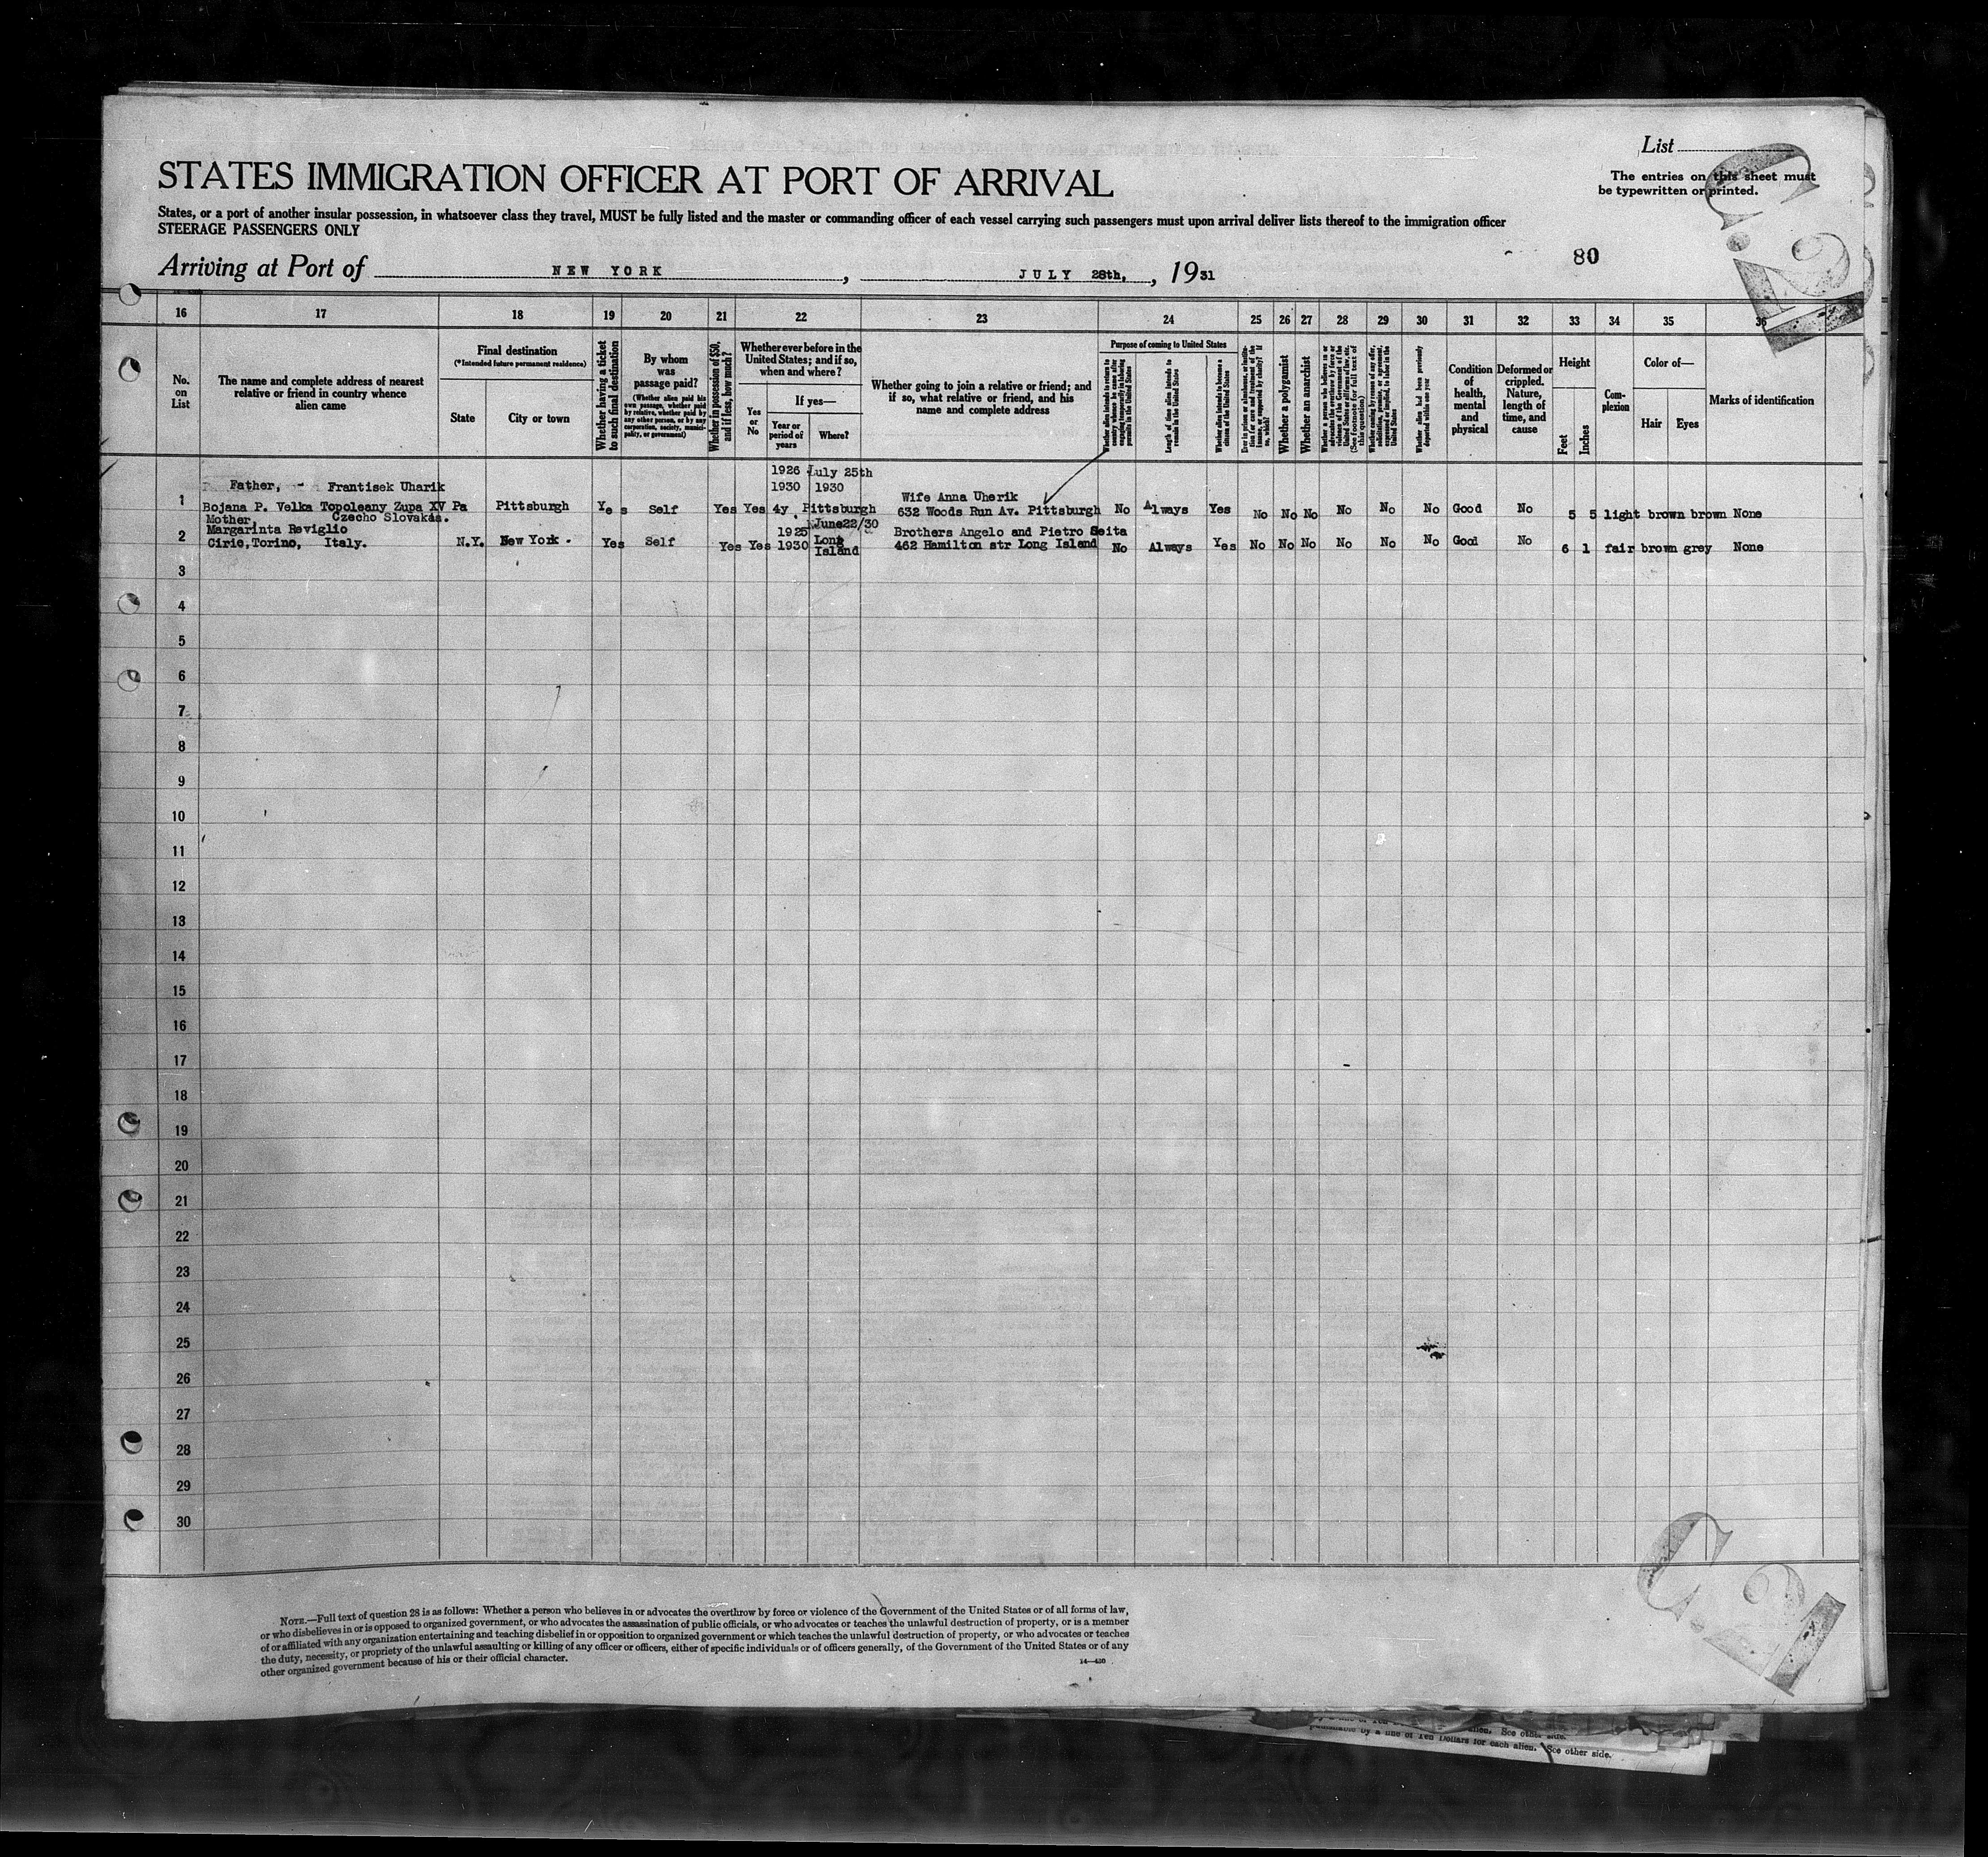 List
STATES IMMIGRATION OFFICER AT PORT OF ARRIVAL
The entries on this sheet must
be typewritten or printed.
States, or a port of another insular possession, in whatsoever class they travel, MUST be fully listed and the master or commanding officer of each vessel carrying such passengers must upon arrival deliver lists thereof to the immigration officer
STEERAGE PASSENGERS ONLY
Arriving at Port of NEW YORK, JULY 28th, , 1931
80
C.21
16 17 18 19 20 21 22 23 24 25 26 27 28 29 30 31 32 33 34 35 36
No. on List
The name and complete address of nearest relative or friend in country whence alien came
Final destination
(*Intended future permanent residence)
State
City or town
Whether having a ticket to such final destination
By whom was passage paid?
(Whether alien paid his own passage, whether paid by relative, whether paid by any other person, or by any corporation, society, municipality, or government)
Whether in possession of $50, and if less, how much?
Whether ever before in the United States; and if so, when and where?
Yes or No
If yes—
Year or period of years
Where?
Whether going to join a relative or friend; and if so, what relative or friend, and his name and complete address
Purpose of coming to United States
Whether alien intends to return to country whence he came after engaging temporarily in laboring pursuits in the United States
Length of time alien intends to remain in the United States
Whether alien intends to become a citizen of the United States
Whether a polygamist
Whether an anarchist
Whether a person who believes in or advocates the overthrow by force or violence of the Government of the United States or all forms of law, etc. (See footnote for full text of this question)
Whether alien had been previously deported within one year
Condition of health, mental and physical
Deformed or crippled. Nature, length of time, and cause
Height
Feet
Inches
Complexion
Color of—
Hair
Eyes
Marks of identification
1926 July 25th
Father, - Frantisek Uharik 1930 1930
Wife Anna Uherik
1 Bojana P. Velka Topoleany Zupa XV Pa Pittsburgh Yes Self Yes Yes 4y Pittsburgh 632 Woods Run Av. Pittsburgh No Always Yes No No No No No No Good No 5 5 light brown brown None
Mother, Czecho Slovakia.
June22/30
Margarinta Reviglio 1925 Brothers Angelo and Pietro Seita
2 Cirie,Torino, Italy. N.Y. New York. Yes Self Yes Yes 1930 Long Island 462 Hamilton str Long Island No Always Yes No No No No No No Good No 6 1 fair brown grey None
3
4
5
6
7
8
9
10
11
12
13
14
15
16
17
18
19
20
21
22
23
24
25
26
27
28
29
30
C.21
NOTE.—Full text of question 28 is as follows: Whether a person who believes in or advocates the overthrow by force or violence of the Government of the United States or of all forms of law,
or who disbelieves in or is opposed to organized government, or who advocates the assassination of public officials, or who advocates or teaches the unlawful destruction of property, or is a member
of or affiliated with any organization entertaining and teaching disbelief in or opposition to organized government or which teaches the unlawful destruction of property, or who advocates or teaches
the duty, necessity, or propriety of the unlawful assaulting or killing of any officer or officers, either of specific individuals or of officers generally, of the Government of the United States or of any
other organized government because of his or their official character.
14—430
alien. See other side.
punishable by a fine of Ten Dollars for each alien. See other side.